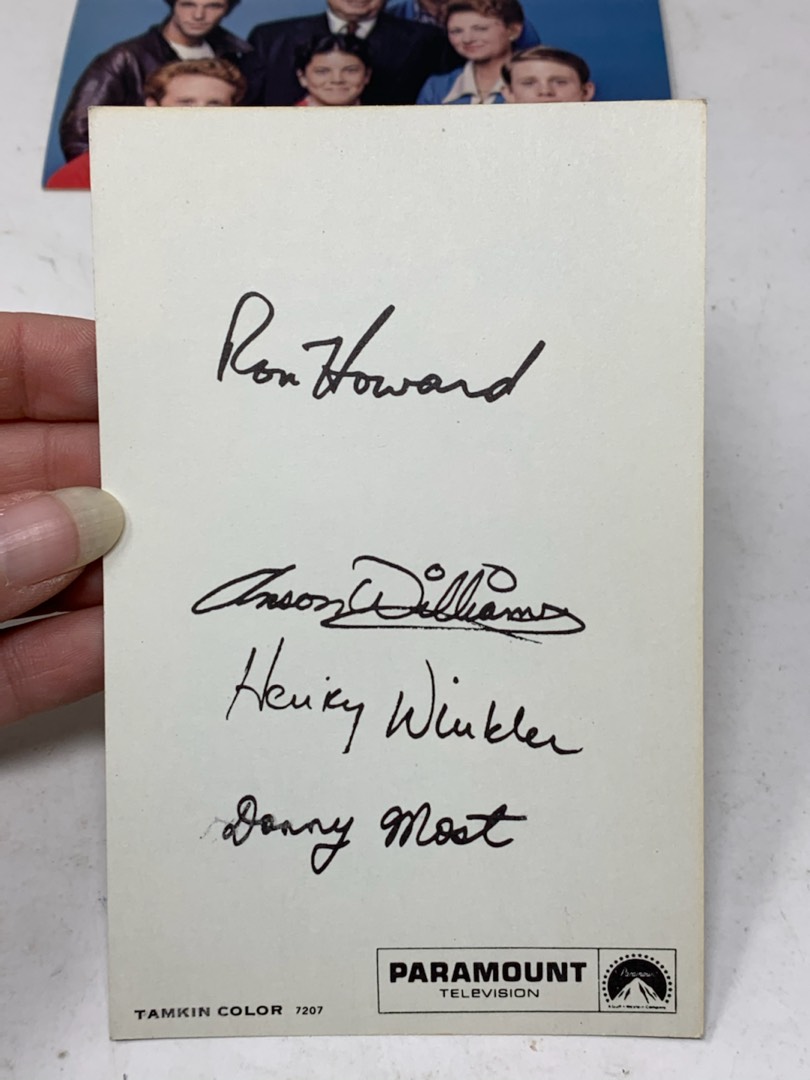 Ron Howard
Anson Williams
Henry Winkler
Donny Most
PARAMOUNT
TELEVISION
TAMKIN COLOR 7207